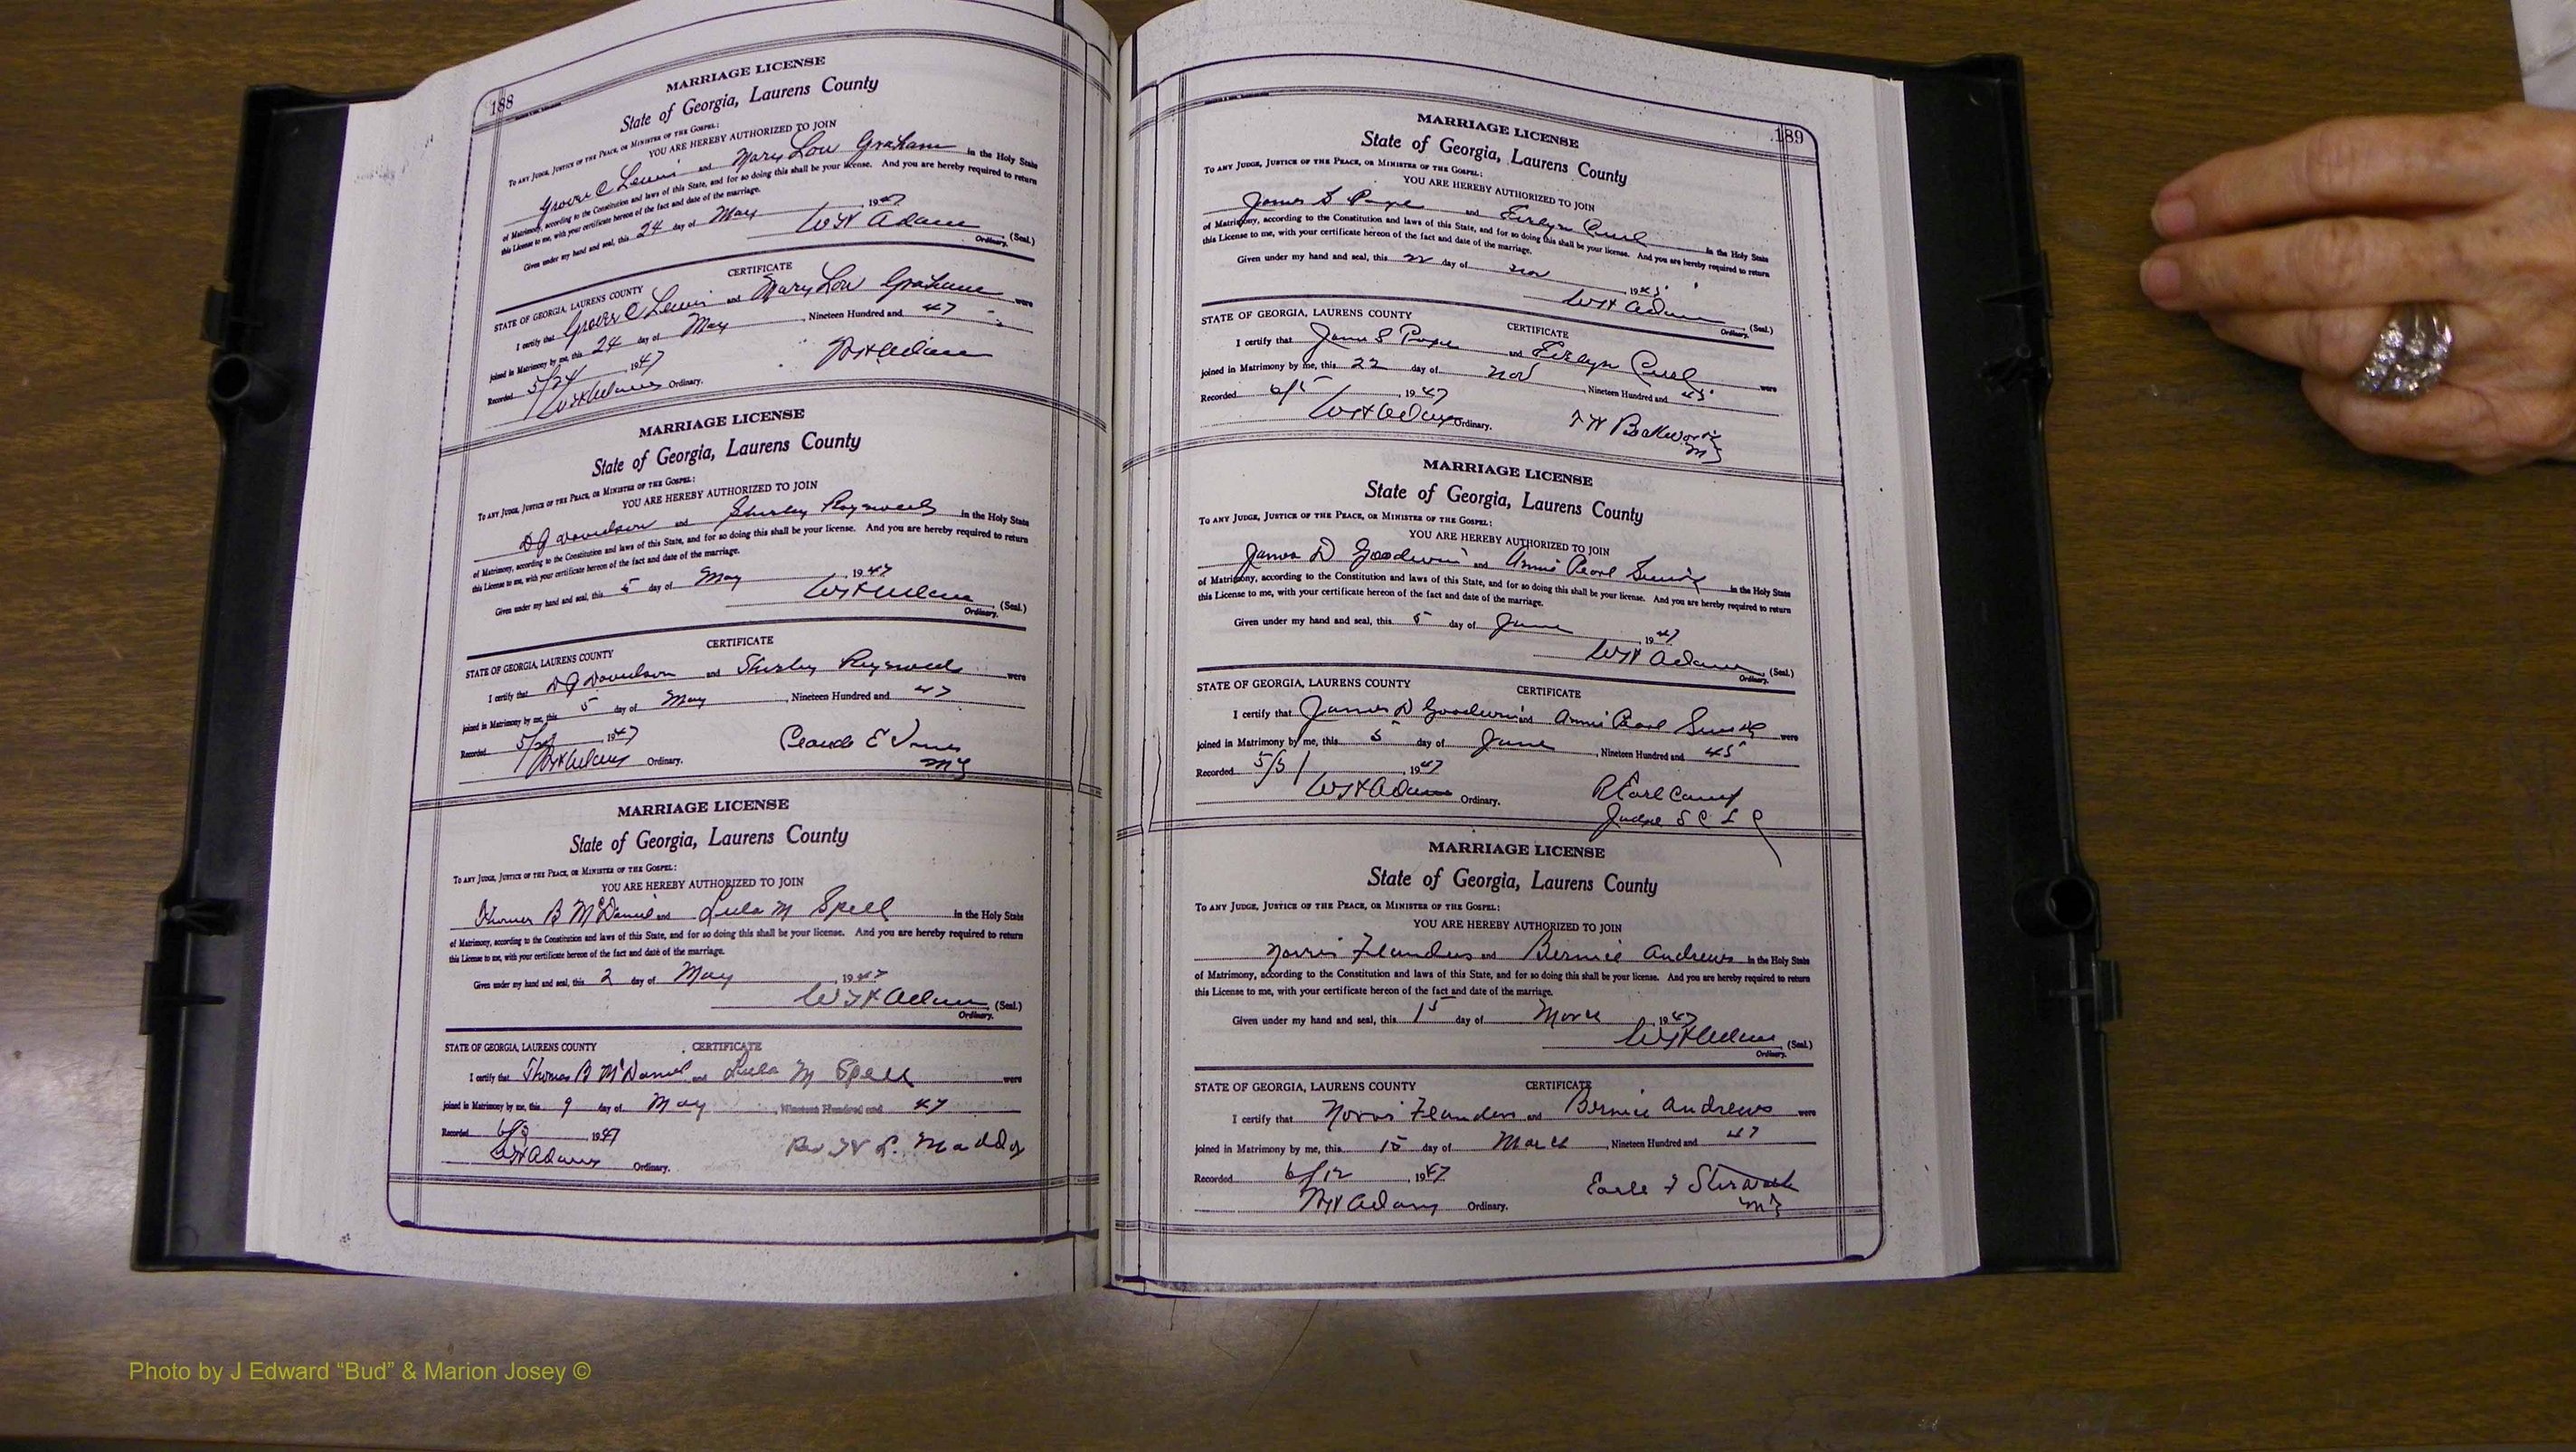 188
MARRIAGE LICENSE
State of Georgia, Laurens County
TO ANY JUDGE, JUSTICE OF THE PEACE, OR MINISTER OF THE GOSPEL:
YOU ARE HEREBY AUTHORIZED TO JOIN
Grover C Lewis and Mary Lou Graham in the Holy State
of Matrimony, according to the Constitution and laws of this State, and for so doing this shall be your license. And you are hereby required to return
this License to me, with your certificate hereon of the fact and date of the marriage.
Given under my hand and seal, this 24 day of May 1947
WH Adams (Seal.)
Ordinary.
CERTIFICATE
STATE OF GEORGIA, LAURENS COUNTY
I certify that Grover C Lewis and Mary Lou Graham were
joined in Matrimony by me, this 24 day of May, Nineteen Hundred and 47
Recorded 5/24 1947
WH Adams
WH Adams Ordinary.
MARRIAGE LICENSE
State of Georgia, Laurens County
TO ANY JUDGE, JUSTICE OF THE PEACE, OR MINISTER OF THE GOSPEL:
YOU ARE HEREBY AUTHORIZED TO JOIN
Davidson and Shirley in the Holy State
of Matrimony, according to the Constitution and laws of this State, and for so doing this shall be your license. And you are hereby required to return
this License to me, with your certificate hereon of the fact and date of the marriage.
Given under my hand and seal, this 5 day of May 1947
WH Adams (Seal.)
Ordinary.
CERTIFICATE
STATE OF GEORGIA, LAURENS COUNTY
I certify that Davidson and Shirley were
joined in Matrimony by me, this 5 day of May, Nineteen Hundred and 47
Recorded 1947
Claude E Jones
WH Adams Ordinary.
MARRIAGE LICENSE
State of Georgia, Laurens County
TO ANY JUDGE, JUSTICE OF THE PEACE, OR MINISTER OF THE GOSPEL:
YOU ARE HEREBY AUTHORIZED TO JOIN
Thomas B McDaniel and Lula M Spell in the Holy State
of Matrimony, according to the Constitution and laws of this State, and for so doing this shall be your license. And you are hereby required to return
this License to me, with your certificate hereon of the fact and date of the marriage.
Given under my hand and seal, this 2 day of May 1947
WH Adams (Seal.)
Ordinary.
STATE OF GEORGIA, LAURENS COUNTY CERTIFICATE
I certify that Thomas B McDaniel and Lula M Spell were
joined in Matrimony by me, this 9 day of May, Nineteen Hundred and 47
Recorded 1947
Rev Maddox
WH Adams Ordinary.
189
MARRIAGE LICENSE
State of Georgia, Laurens County
TO ANY JUDGE, JUSTICE OF THE PEACE, OR MINISTER OF THE GOSPEL:
YOU ARE HEREBY AUTHORIZED TO JOIN
James S Pope and Evelyn in the Holy State
of Matrimony, according to the Constitution and laws of this State, and for so doing this shall be your license. And you are hereby required to return
this License to me, with your certificate hereon of the fact and date of the marriage.
Given under my hand and seal, this 22 day of Nov 1945
WH Adams (Seal.)
Ordinary.
STATE OF GEORGIA, LAURENS COUNTY CERTIFICATE
I certify that James S Pope and Evelyn were
joined in Matrimony by me, this 22 day of Nov, Nineteen Hundred and 45
Recorded 6/5 1947
WH Adams Ordinary.
MARRIAGE LICENSE
State of Georgia, Laurens County
TO ANY JUDGE, JUSTICE OF THE PEACE, OR MINISTER OF THE GOSPEL:
YOU ARE HEREBY AUTHORIZED TO JOIN
James D Goodwin and Annie Pearl Smith in the Holy State
of Matrimony, according to the Constitution and laws of this State, and for so doing this shall be your license. And you are hereby required to return
this License to me, with your certificate hereon of the fact and date of the marriage.
Given under my hand and seal, this 5 day of June 1947
WH Adams (Seal.)
Ordinary.
STATE OF GEORGIA, LAURENS COUNTY CERTIFICATE
I certify that James D Goodwin and Annie Pearl Smith were
joined in Matrimony by me, this 5 day of June, Nineteen Hundred and 45
Recorded 1947
R Earl Camp
WH Adams Ordinary.
Judge
MARRIAGE LICENSE
State of Georgia, Laurens County
TO ANY JUDGE, JUSTICE OF THE PEACE, OR MINISTER OF THE GOSPEL:
YOU ARE HEREBY AUTHORIZED TO JOIN
Norris Flanders and Bernice Andrews in the Holy State
of Matrimony, according to the Constitution and laws of this State, and for so doing this shall be your license. And you are hereby required to return
this License to me, with your certificate hereon of the fact and date of the marriage.
Given under my hand and seal, this 15 day of 1947
WH Adams (Seal.)
Ordinary.
STATE OF GEORGIA, LAURENS COUNTY CERTIFICATE
I certify that Norris Flanders and Bernice Andrews were
joined in Matrimony by me, this 15 day of March, Nineteen Hundred and 47
Recorded 6/12, 1947
Earle
WH Adams Ordinary.
Photo by J Edward “Bud” & Marion Josey ©